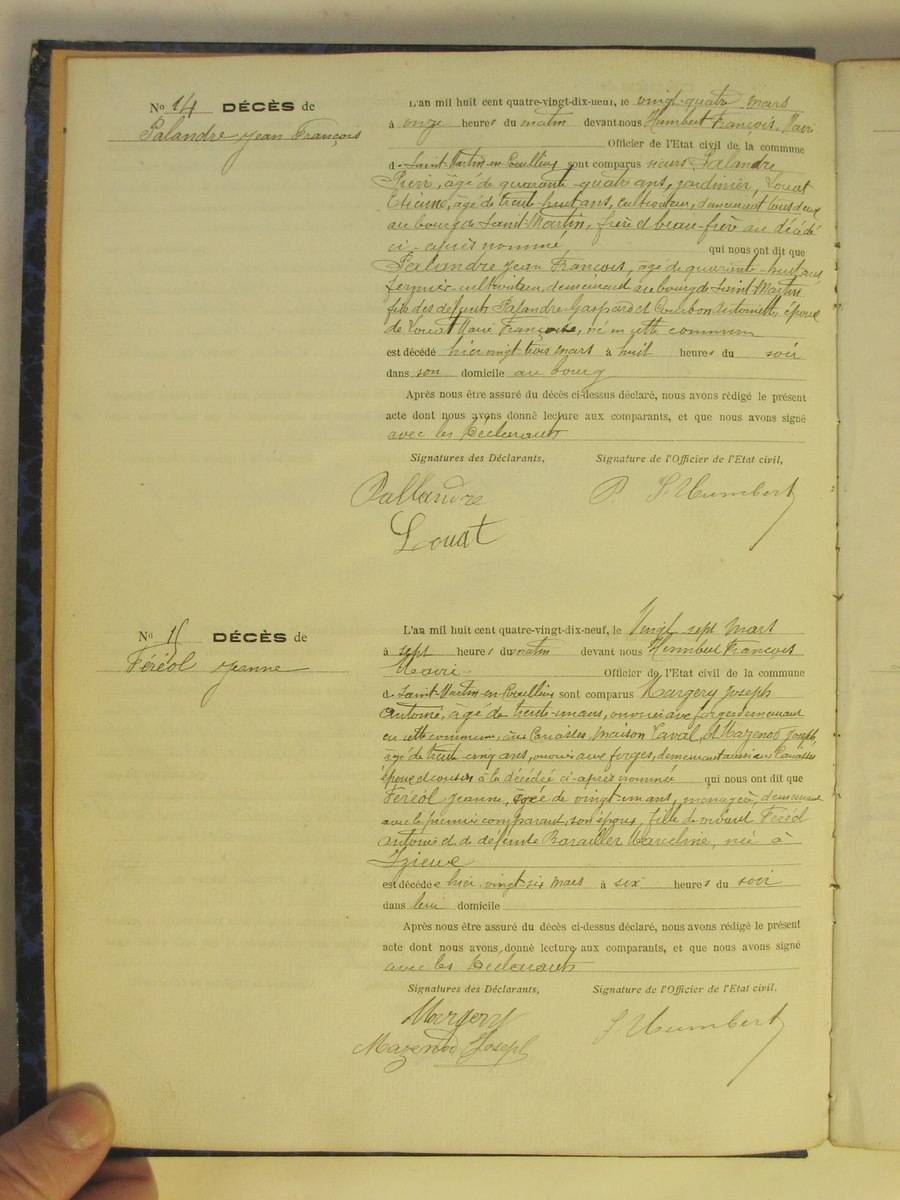 No 14 DÉCÈS de
Palandre Jean François
L'an mil huit cent quatre-vingt-dix-neuf, le vingt-quatre mars
à onze heures du matin devant nous Humbert François, Maire
Officier de l'Etat civil de la commune
de Saint-Martin-en-Coailleux sont comparus sieurs Palandre
Pierre, âgé de quarante-quatre ans, jardinier, Louat
Etienne, âgé de trente-huit ans, cultivateur, demeurant tous deux
au bourg de Saint-Martin, frère et beau-frère au décédé
ci-après nommé, qui nous ont dit que
Palandre Jean François, âgé de quarante-huit ans
fermier-cultivateur, demeurant au bourg de Saint-Martin
fils des défunts Palandre Gaspard et Antoinette, époux
de Louat Marie Françoise, né en cette commune
est décédé hier vingt-trois mars à huit heures du soir
dans son domicile au bourg
Après nous être assuré du décès ci-dessus déclaré, nous avons rédigé le présent
acte dont nous avons donné lecture aux comparants, et que nous avons signé
avec les Déclarants
Signatures des Déclarants, Signature de l'Officier de l'Etat civil,
Pallandre F. Humbert
Louat
No 15 DÉCÈS de
Féréol Jeanne
L'an mil huit cent quatre-vingt-dix-neuf, le Vingt sept mars
à sept heures du matin devant nous Humbert François
Maire Officier de l'Etat civil de la commune
de Saint-Martin-en-Coailleux sont comparus Margery Joseph
Antoine, âgé de trente-un ans, ouvrier aux forges demeurant
en cette commune, aux Cavasses, maison Laval, et Mazenod Joseph,
âgé de trente-cinq ans, ouvrier aux forges, demeurant aussi aux Cavasses
époux et cousin à la décédée ci-après nommée qui nous ont dit que
Féréol Jeanne, âgée de vingt-un ans, ménagère, demeurant
avec le premier comparant, son époux, fille de vivant Féréol
Antoine et de défunte Barailler Marceline, née à
Izieux
est décédée hier, vingt-six mars à six heures du soir
dans leur domicile
Après nous être assuré du décès ci-dessus déclaré, nous avons rédigé le présent
acte dont nous avons donné lecture aux comparants, et que nous avons signé
avec les Déclarants
Signatures des Déclarants, Signature de l'Officier de l'Etat civil,
Margery F. Humbert
Mazenod Joseph